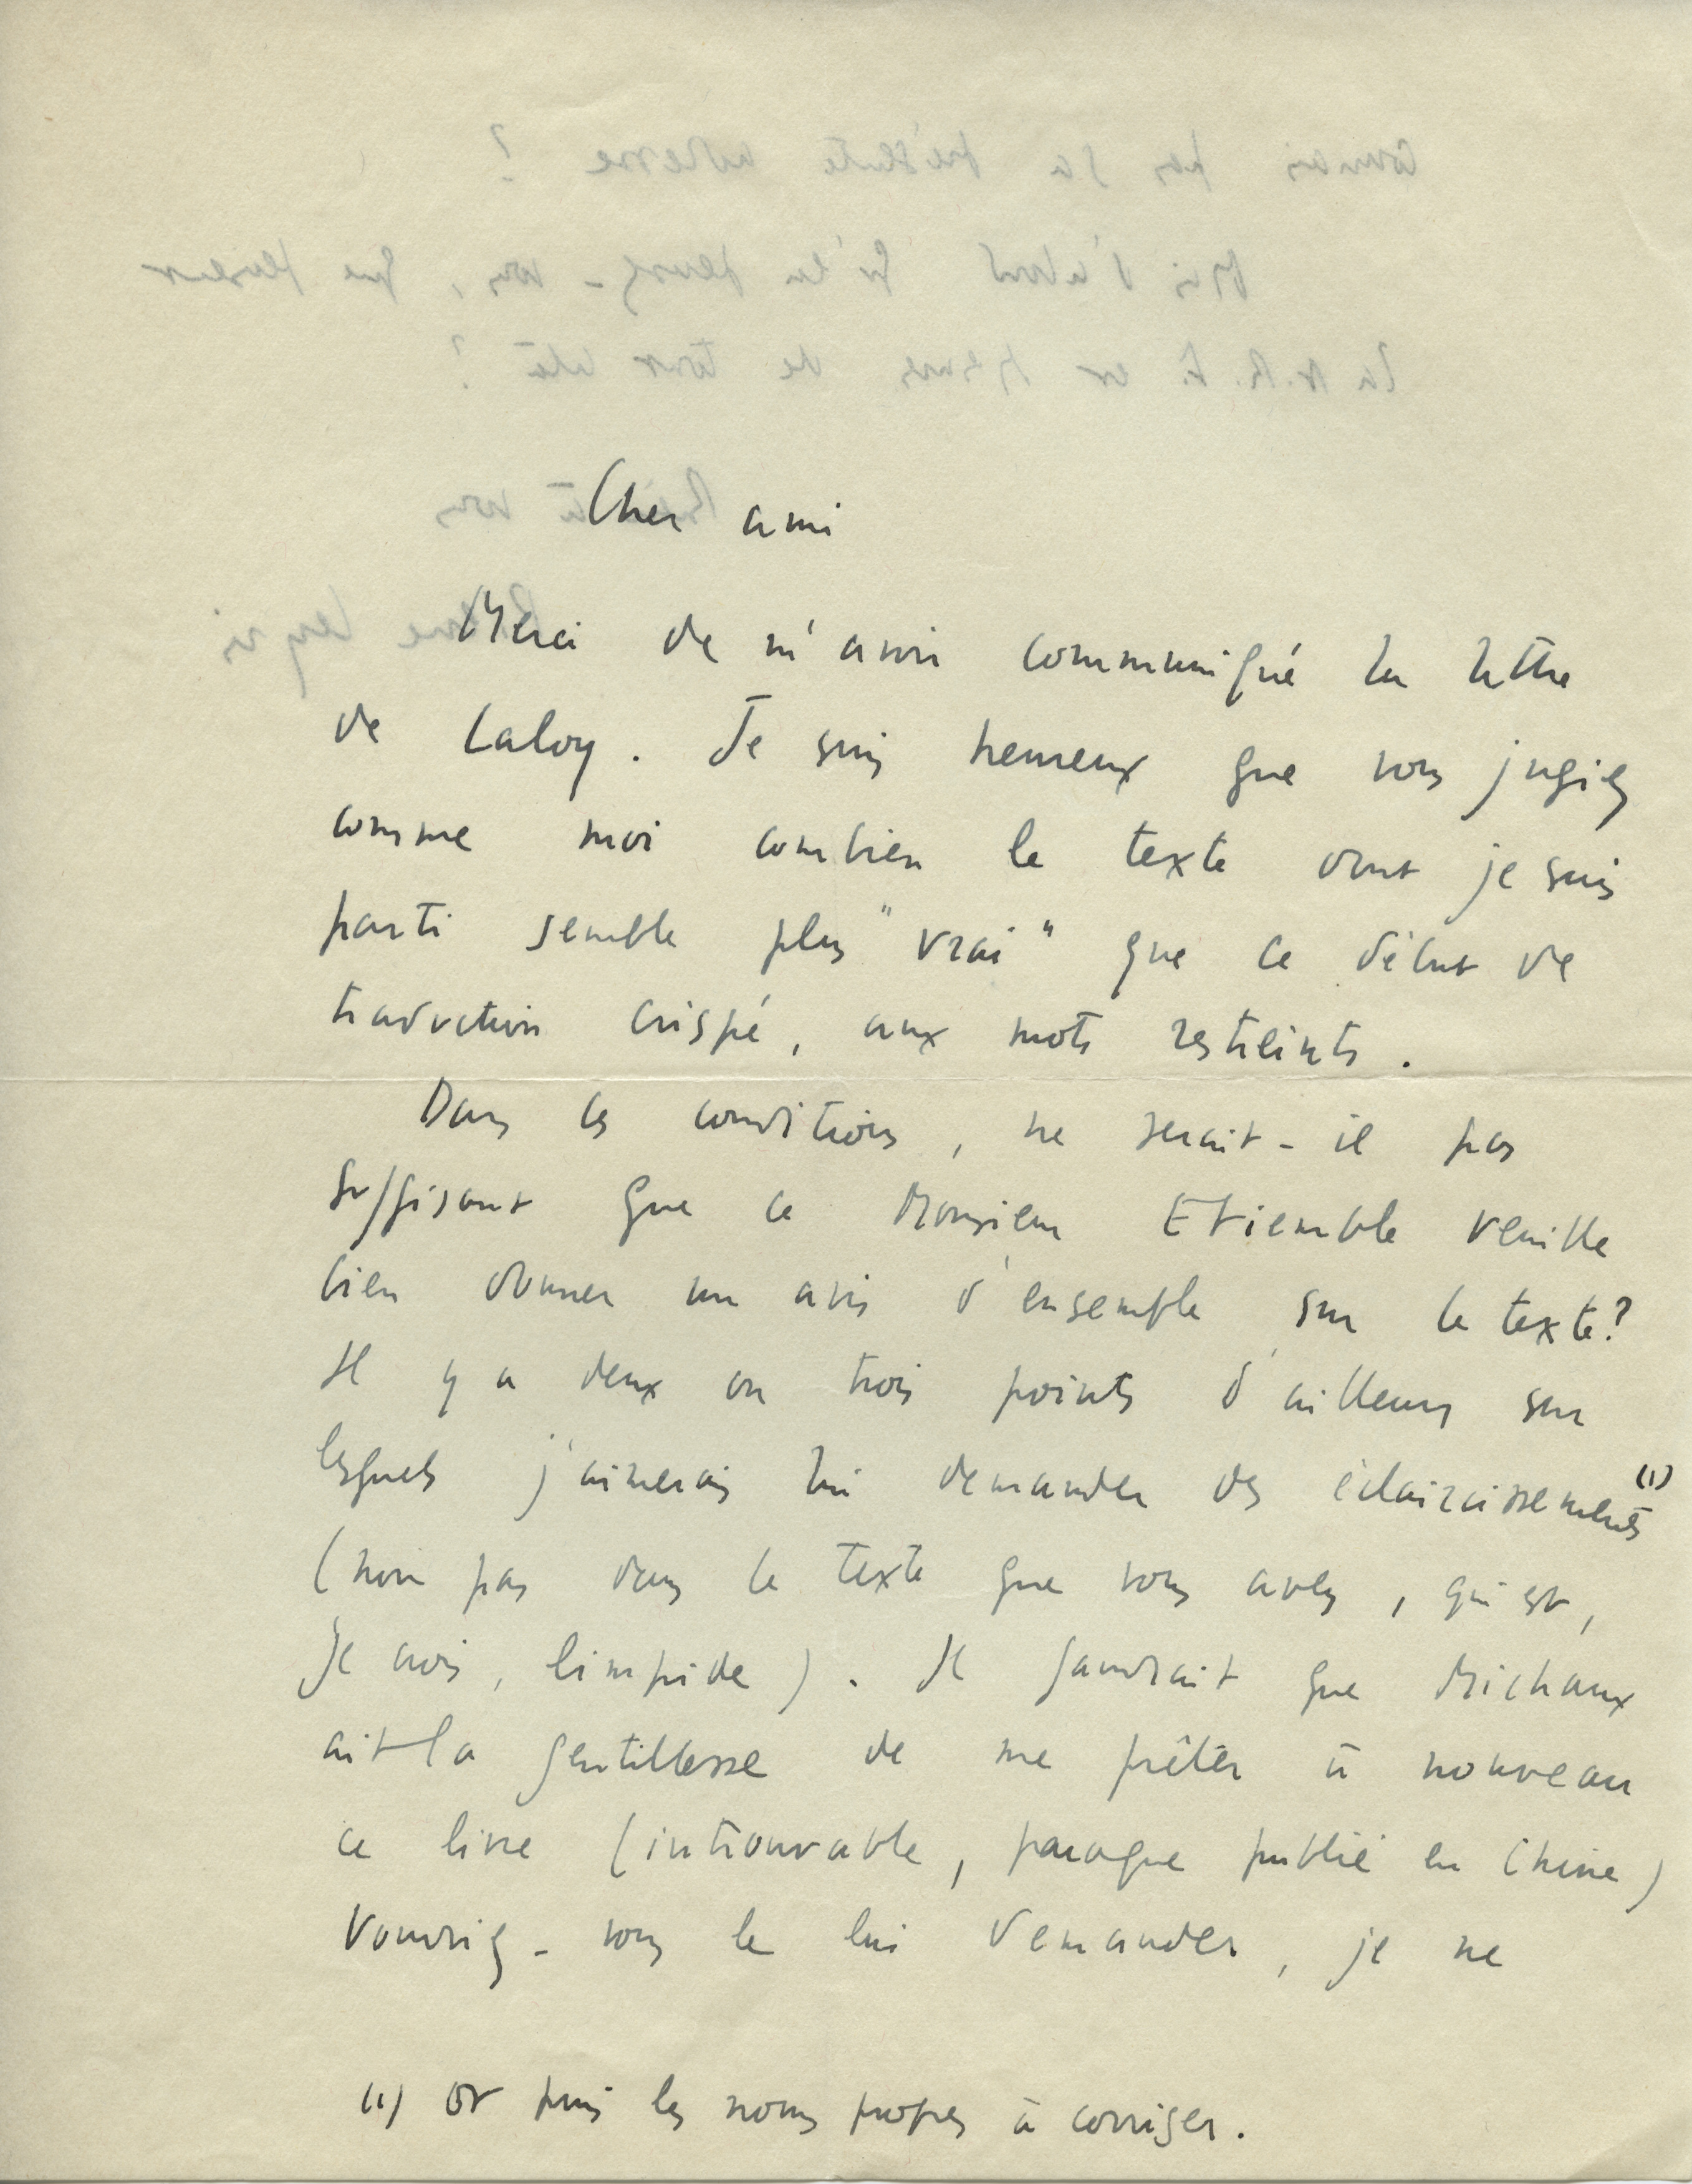 Cher ami
Merci de m'avoir communiqué la lettre
de Laloy. Je suis heureux que vous jugiez
comme moi combien le texte dont je suis
parti semble plus "vrai" que ce début de
traduction crispé, aux mots restreints.
Dans ces conditions, ne serait-il pas
suffisant que ce Monsieur Etiemble veuille
bien donner un avis d'ensemble sur le texte?
Il y a deux ou trois points d'ailleurs sur
lesquels j'aimerais lui demander des éclaircissements (1)
(non pas dans le texte que vous avez, qui est,
je crois, limpide). Il faudrait que Michaux
ait la gentillesse de me prêter à nouveau
ce livre (introuvable, parce que publié en Chine)
Voudriez-vous le lui demander, je ne
(1) et puis les noms propres à corriger.
connais pas sa présente adresse ?
Mais d'abord qu'en pensez-vous, que penseur
la N.R.F. et
de tout cela ?
Bien à vous